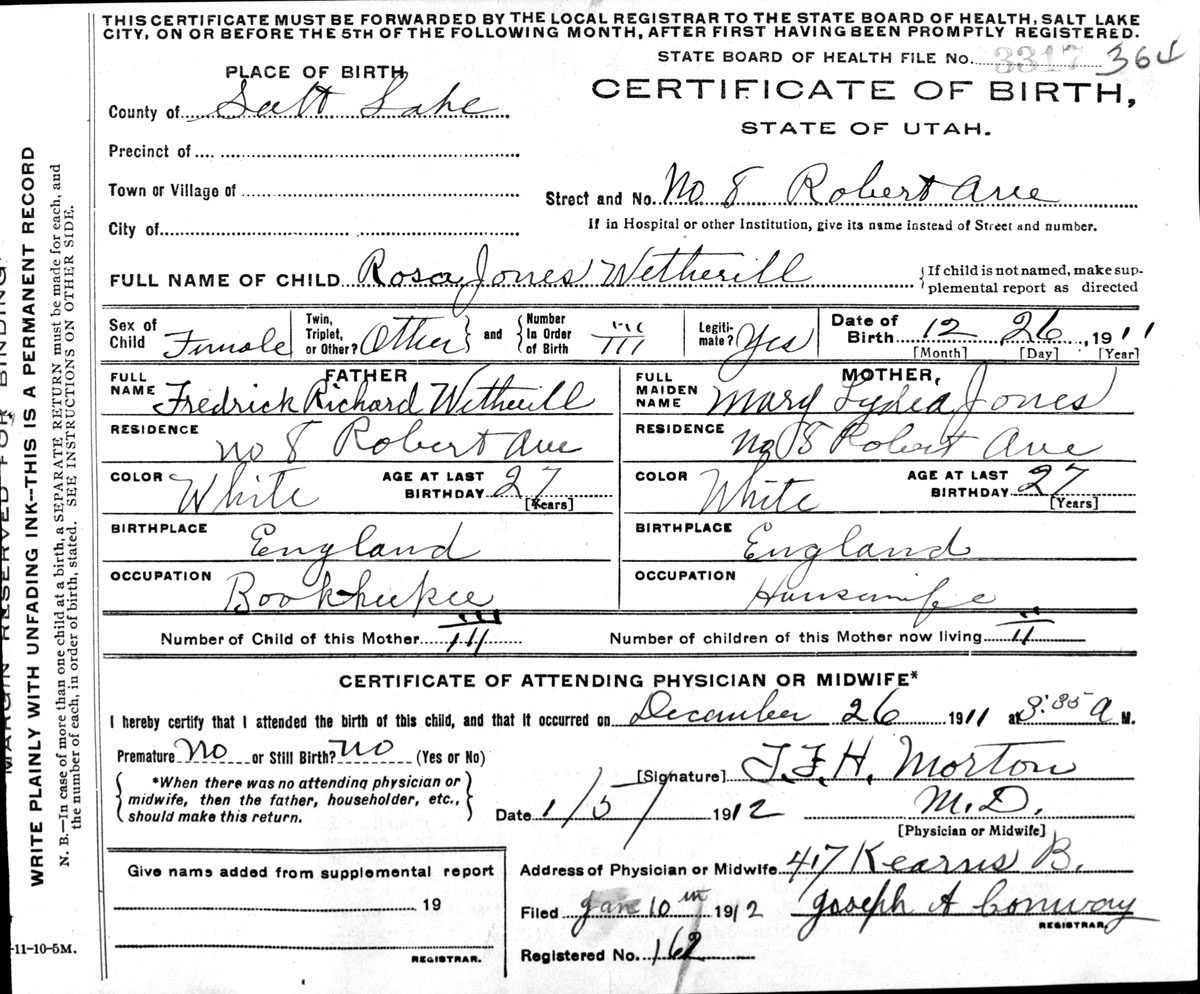 THIS CERTIFICATE MUST BE FORWARDED BY THE LOCAL REGISTRAR TO THE STATE BOARD OF HEALTH, SALT LAKE
CITY, ON OR BEFORE THE 5TH OF THE FOLLOWING MONTH, AFTER FIRST HAVING BEEN PROMPTLY REGISTERED.
STATE BOARD OF HEALTH FILE NO. 3317 364
PLACE OF BIRTH
CERTIFICATE OF BIRTH,
County of Salt Lake
STATE OF UTAH.
Precinct of
Town or Village of
Street and No. No 8 Robert Ave
City of
If in Hospital or other Institution, give its name instead of Street and number.
FULL NAME OF CHILD Rosa Jones Wetherill
{If child is not named, make sup-
plemental report as directed
Sex of Child Female
Twin, Triplet, or Other? Other } and { Number In Order of Birth III
Legiti-mate? Yes
Date of Birth 12 26, 1911
[Month] [Day] [Year]
FATHER
FULL NAME Fredrick Richard Wetherill
RESIDENCE No 8 Robert Ave
COLOR White AGE AT LAST BIRTHDAY 27 [Years]
BIRTHPLACE England
OCCUPATION Bookkeeper
MOTHER,
FULL MAIDEN NAME Mary Lydia Jones
RESIDENCE No 8 Robert Ave
COLOR White AGE AT LAST BIRTHDAY 27 [Years]
BIRTHPLACE England
OCCUPATION Housewife
Number of Child of this Mother III
Number of children of this Mother now living II
CERTIFICATE OF ATTENDING PHYSICIAN OR MIDWIFE*
I hereby certify that I attended the birth of this child, and that it occurred on December 26 1911 at 3:35 a M.
Premature No or Still Birth? No (Yes or No)
{ *When there was no attending physician or
midwife, then the father, householder, etc.,
should make this return. }
[Signature] T.F.H. Morton
Date 1/5/ 1912 M.D.
[Physician or Midwife]
Address of Physician or Midwife 417 Kearns B.
Filed Jan 10th 1912 Joseph A Conway
REGISTRAR
Registered No. 162
Give name added from supplemental report
19
REGISTRAR.
-11-10-5M.
MARGIN RESERVED FOR BINDING
WRITE PLAINLY WITH UNFADING INK--THIS IS A PERMANENT RECORD
N. B.—In case of more than one child at a birth, a SEPARATE RETURN must be made for each, and
the number of each, in order of birth, stated. SEE INSTRUCTIONS ON OTHER SIDE.